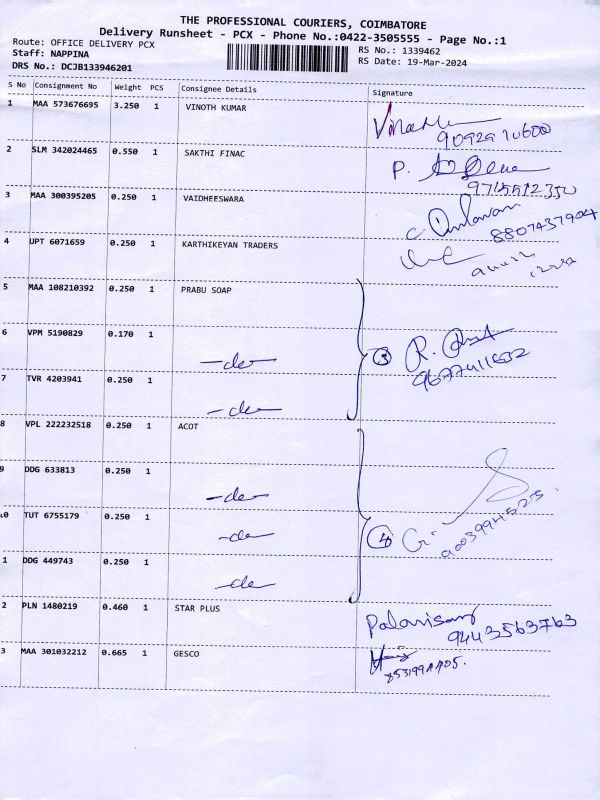 THE PROFESSIONAL COURIERS, COIMBATORE
Delivery Runsheet - PCX - Phone No.:0422-3505555 - Page No.:1
Route: OFFICE DELIVERY PCX
RS No.: 1339462
Staff: NAPPINA
RS Date: 19-Mar-2024
DRS No.: DCJB133946201
S No Consignment No Weight PCS Consignee Details Signature
1 MAA 573676695 3.250 1 VINOTH KUMAR
2 SLM 342024465 0.550 1 SAKTHI FINAC P.
3 MAA 300395205 0.250 1 VAIDHEESWARA C
8807437904
4 UPT 6071659 0.250 1 KARTHIKEYAN TRADERS
5 MAA 108210392 0.250 1 PRABU SOAP
6 VPM 5190829 0.170 1 -do- 3 R.
9677411632
7 TVR 4203941 0.250 1 -do-
8 VPL 222232518 0.250 1 ACOT
9 DDG 633813 0.250 1 -do-
0 TUT 6755179 0.250 1 -do- 4 G.
9003994525
1 DDG 449743 0.250 1 -do-
2 PLN 1480219 0.460 1 STAR PLUS Palanisamy
9443563763
3 MAA 301032212 0.665 1 GESCO